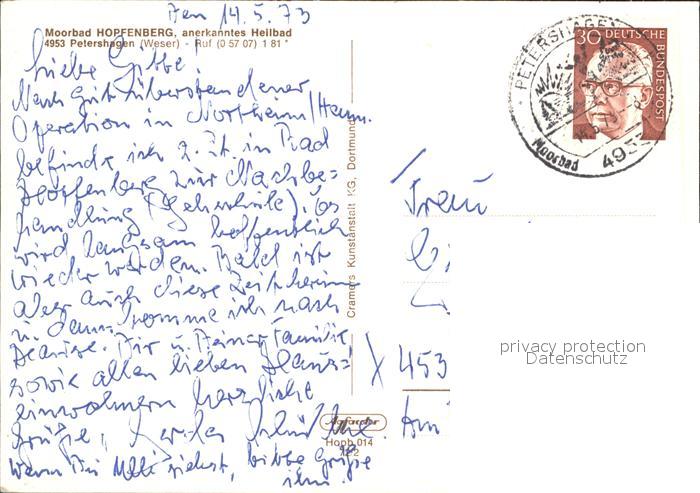 Den 14.5.73
Moorbad HOPFENBERG, anerkanntes Heilbad
4953 Petershagen (Weser) - Ruf (0 57 07) 1 81
Liebe Gitte!
Nach gut überstandener
Operation in Northeim/Hann.
befinde ich z. Zt. in Bad
Hopfenberg zur Nachbe-
handlung (Gehschule). Es
wird langsam hoffentlich
wieder werden. Bald ist
aber auch diese Zeit herum
u. dann komme ich nach
Hause. Dir u. Deiner Familie
sowie allen lieben Haus-
einwohnern herzliche
Grüße,
wenn Du siehst, bitte Grüße
ihn.
Cramers Kunstanstalt KG, Dortmund
Hopb 014
PETERSHAGEN
Moorbad
495
30 DEUTSCHE
BUNDESPOST
Frau
X 453
Am
privacy protection
Datenschutz